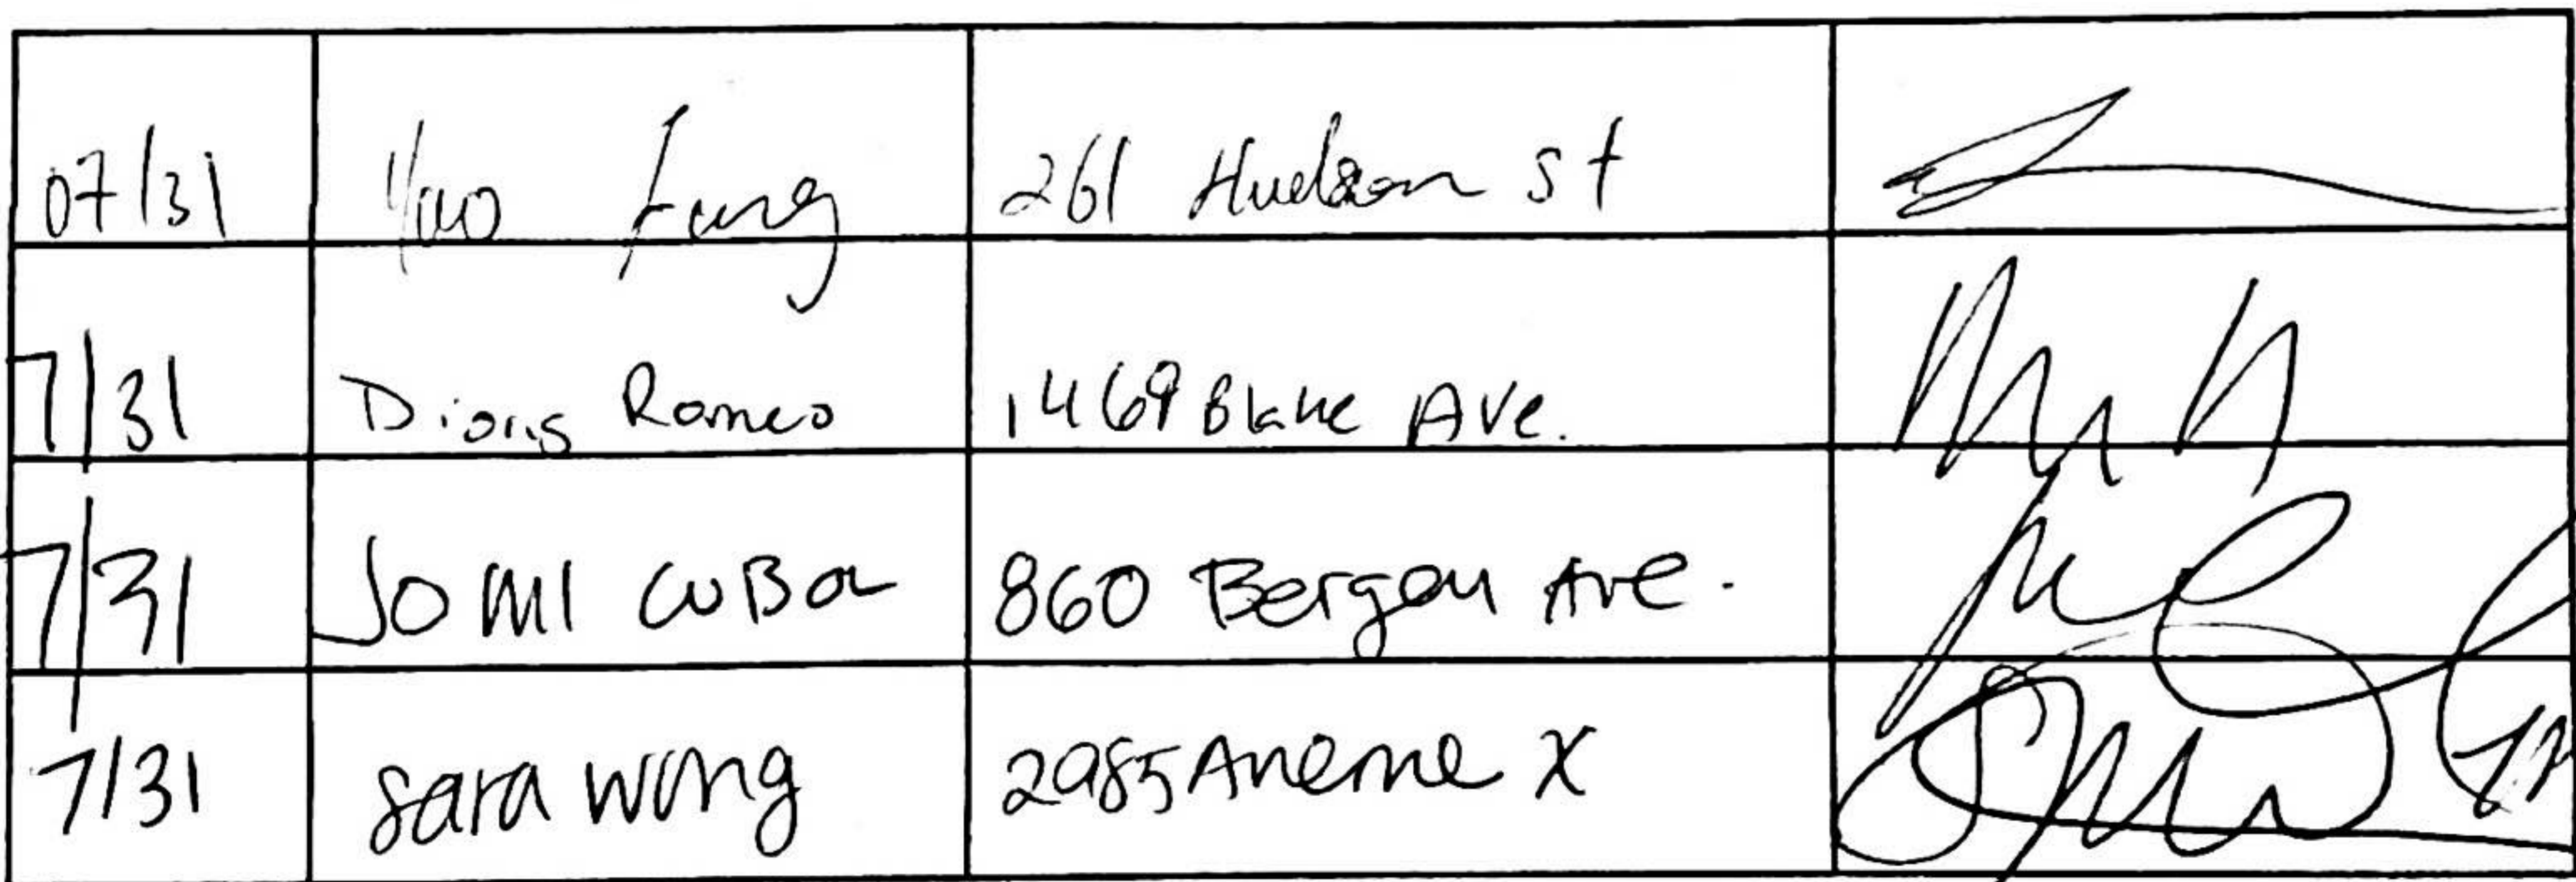 07/31 Yao Fung 261 Hudson St
7/31 Romeo 1469 Blake Ave.
7/31 JOMI CUBA 860 Bergen Ave.
7/31 Sara Wong 2985 Avenue X